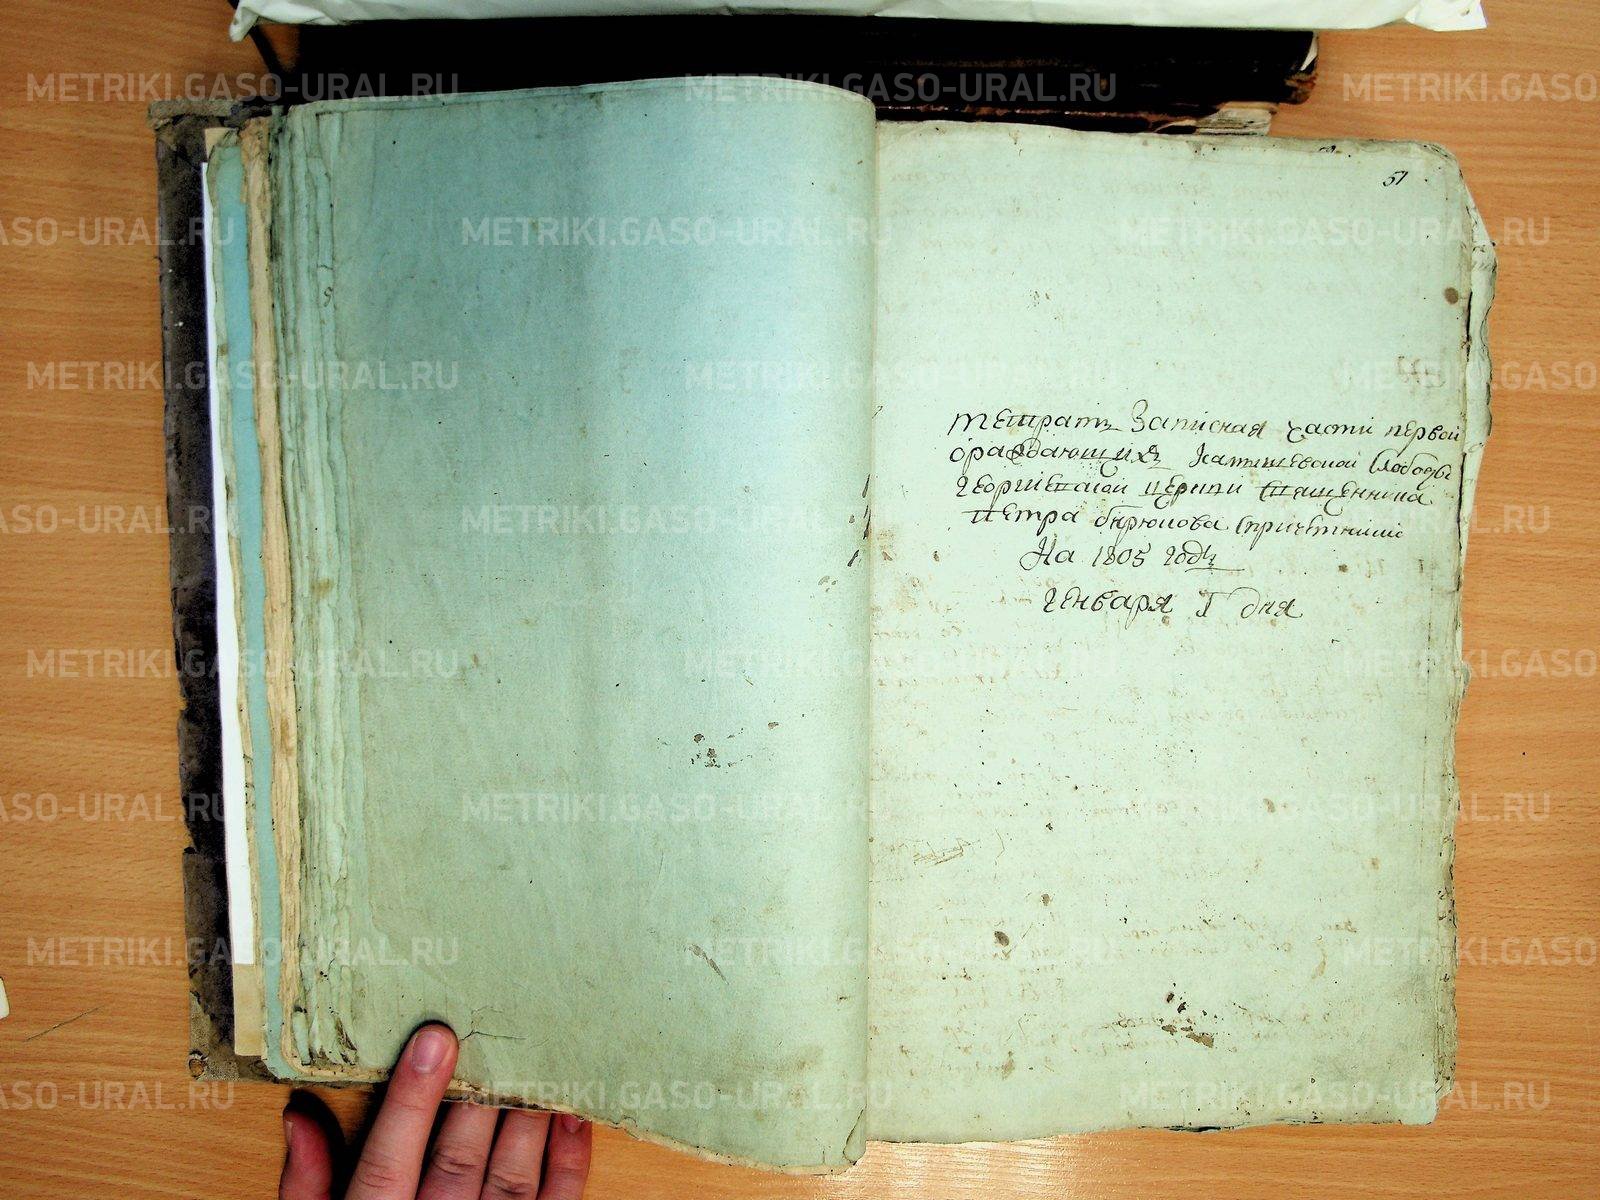 51
тетрать Записная части первой
ораждающихъ Катышевской Слободы
Георгиевской церкви Священника
Петра бирюкова Спричетники
На 1805 годъ
Генваря 1 дня
METRIKI.GASO-URAL.RU